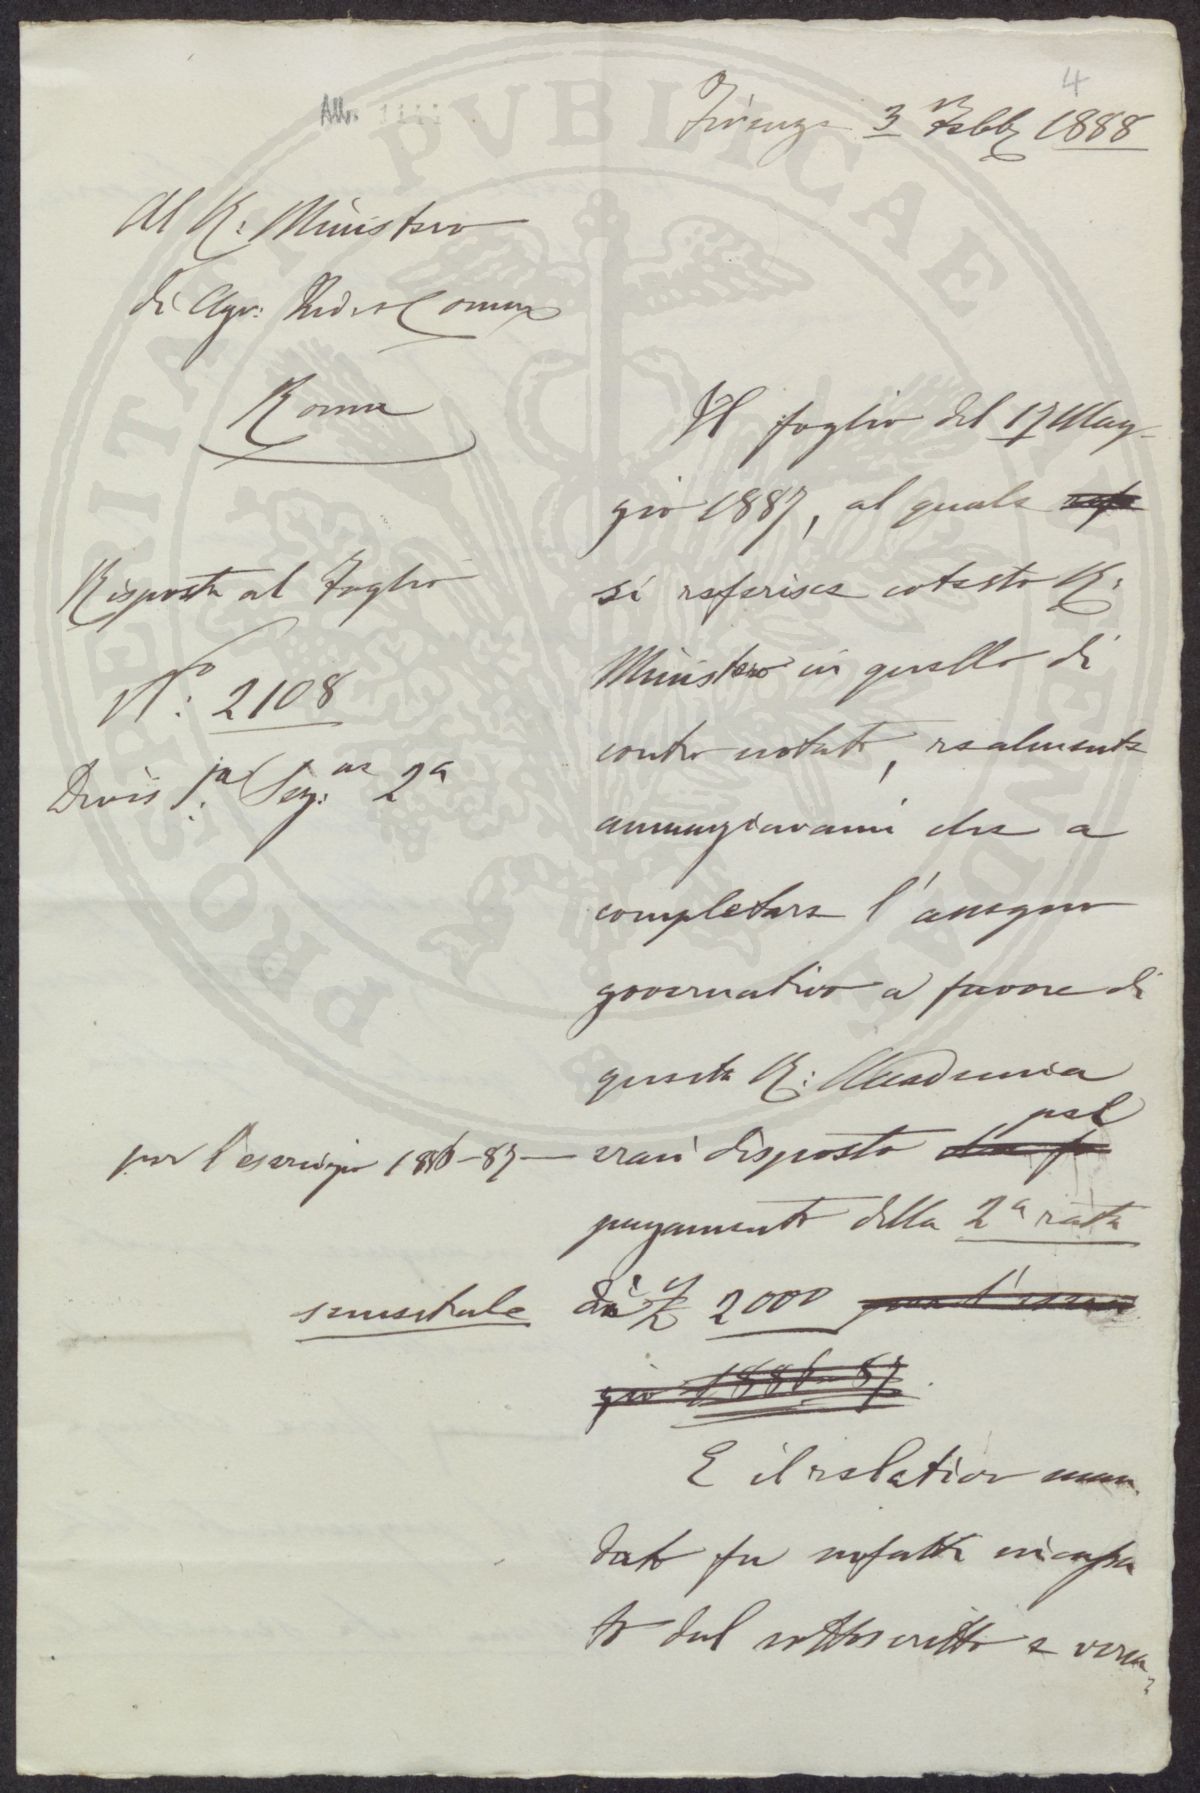 4
Firenze 3 Febb 1888
Al R: Ministero
di Agr: Ind: e Comm
Roma
Risposta al Foglio
N°: 2108
Divis 1ª Sez: 2ª
Il foglio del 17 Mag-
gio 1887, al quale
si riferisce cotesto R:
Ministero in quello di
contro notato, realmente
annunziavami che a
completare l'assegno
governativo a favore di
questa R: Accademia
per l'esercizio 1886-87 — erasi disposto pel
pagamento della 2ª rata
semestrale di £ 2000 per l'eserci
zio 1886-87.
E il relativo man-
dato fu infatti incassa
to dal sottoscritto e versa-
PROSPERITATI PVBLICAE AVGENDAE